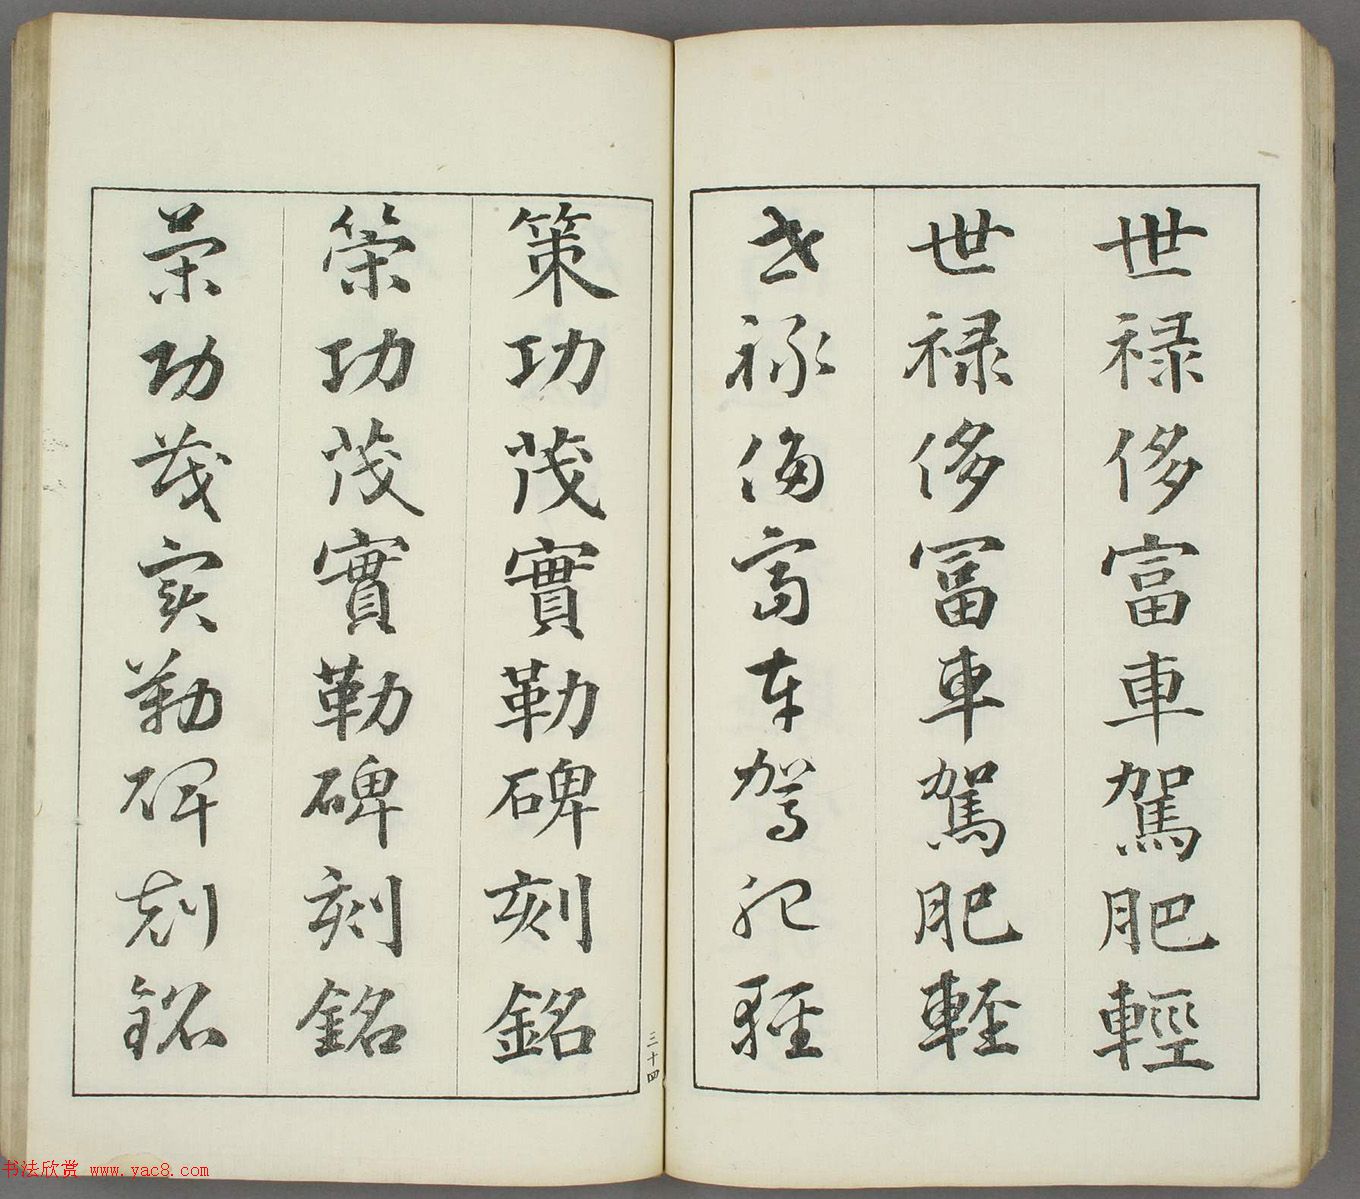 世禄侈富車駕肥輕
世禄侈冨車駕肥軽
世禄侈富車駕肥軽
策功茂實勒碑刻銘
策功茂實勒碑刻銘
策功茂実勒碑刻銘
三十四
书法欣赏 www.yac8.com